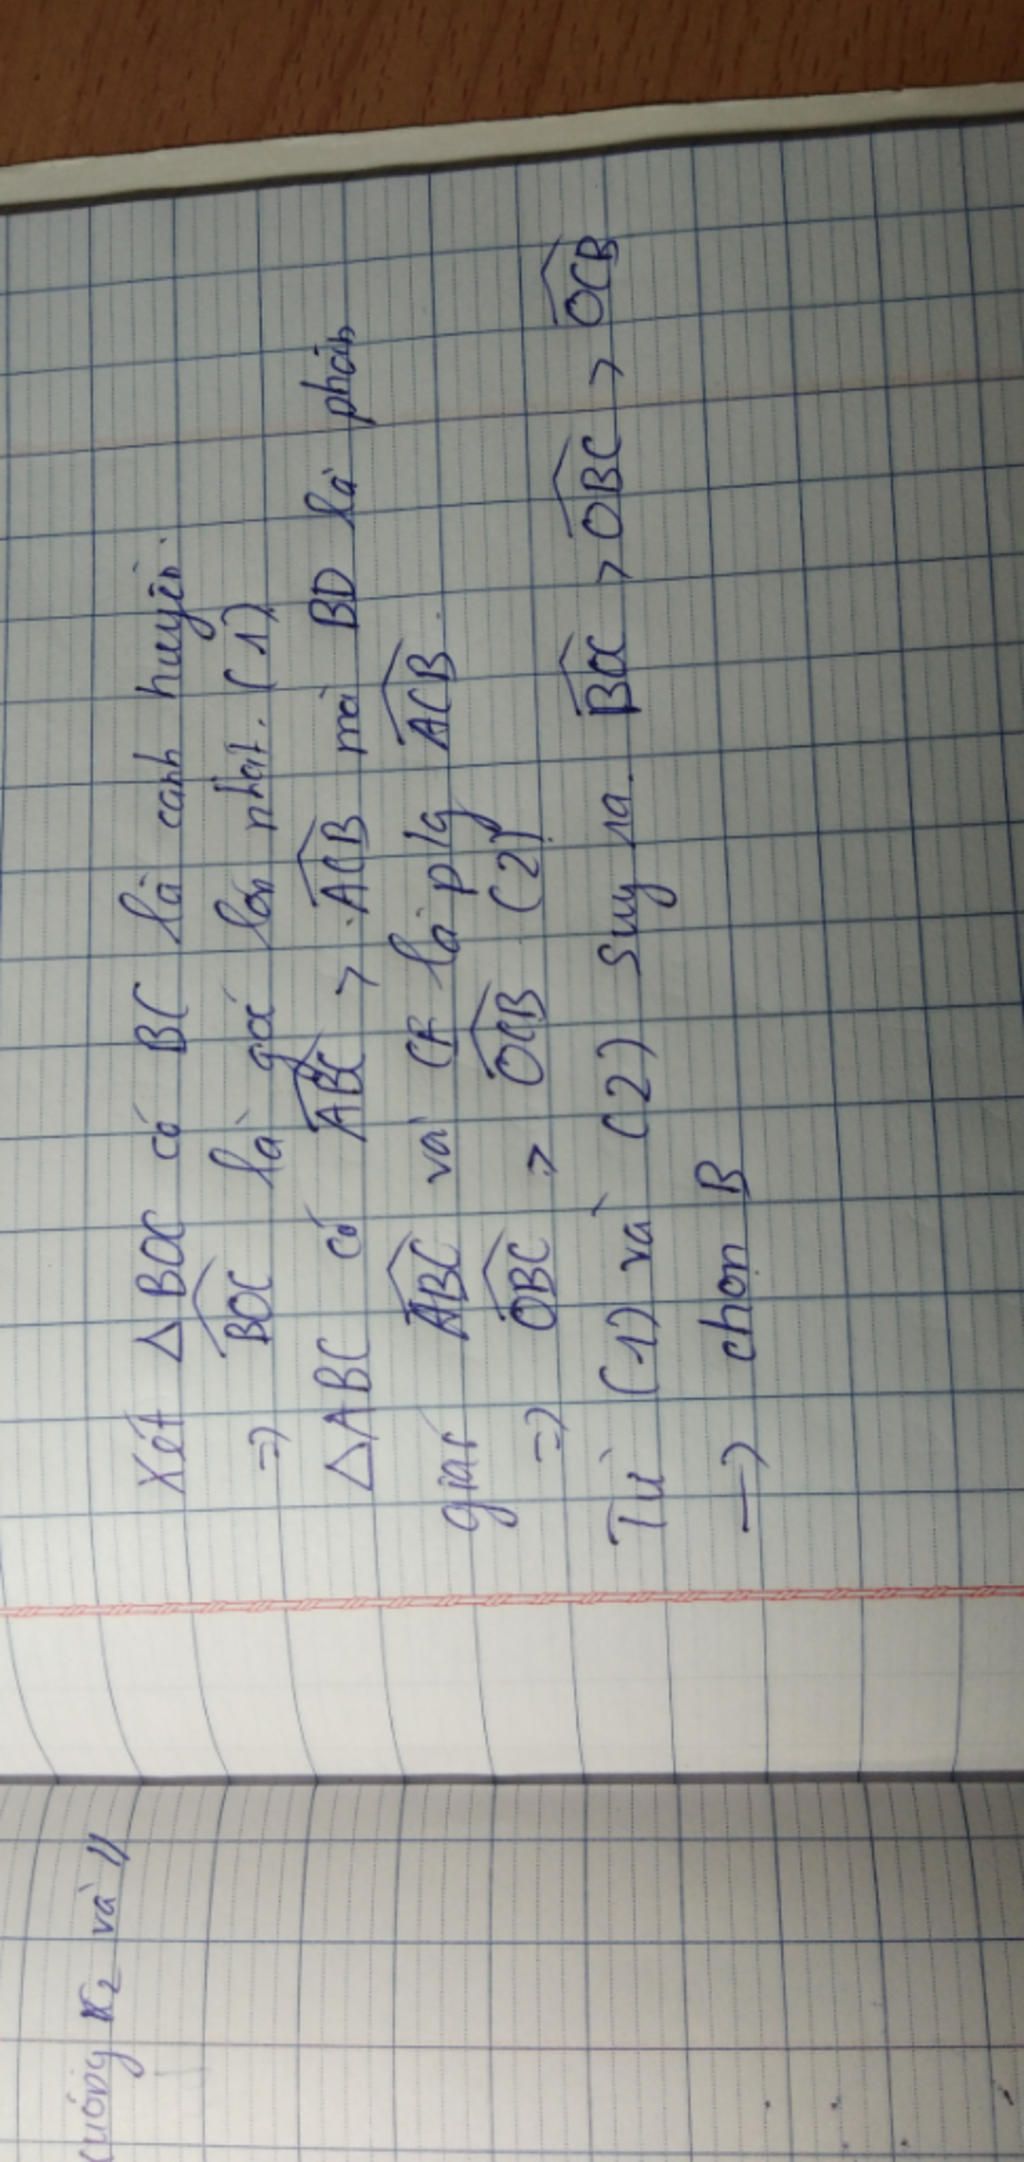 Xét Δ BOC có BC là cạnh huyền.
=> BOC là góc lớn nhất. (1)
ΔABC có ABC > ACB mà BD là phân
giác ABC và CF là plg ACB.
=> OBC > OCB (2)
Từ (1) và (2) suy ra. BOC > OBC > OCB
→ chọn B
K2 và //